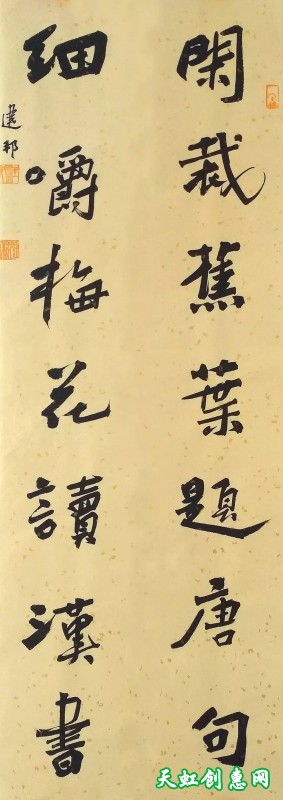 閑裁蕉葉題唐句
細嚼梅花讀漢書
天虹创惠网